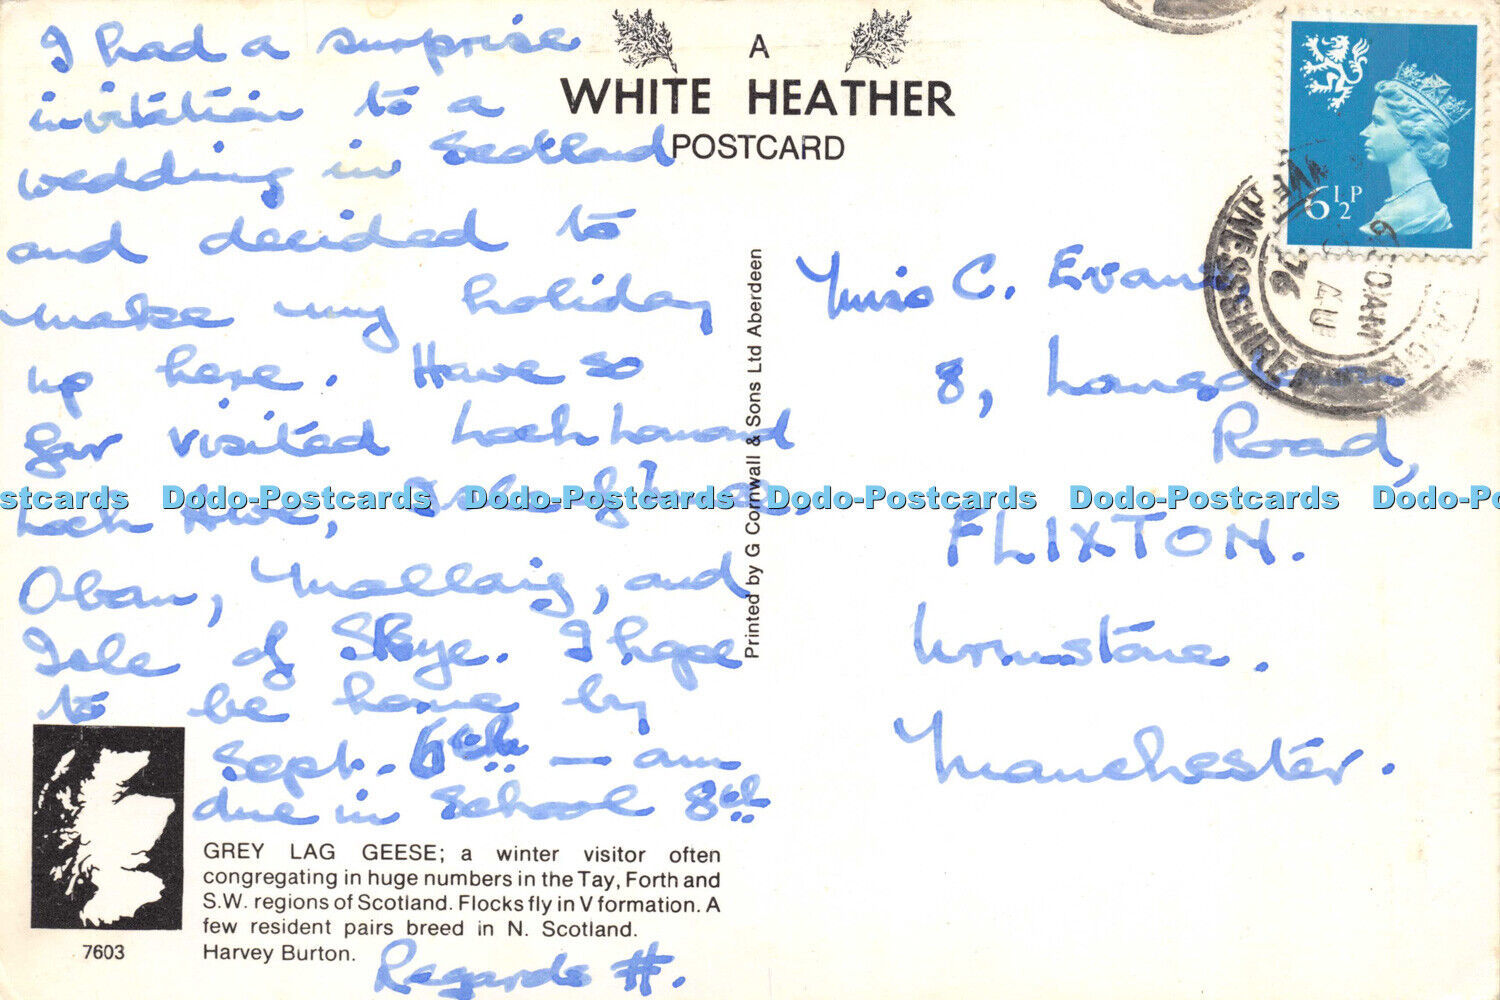 I had a surprise
invitation to a
wedding in Scotland
and decided to
make my holiday
up here. Have so
far visited Loch Lomond
Loch Awe, Isle of
Oban, Mallaig, and
Isle of Skye. I hope
to be home by
Sept. 6th — am
due in School 8th
GREY LAG GEESE; a winter visitor often
congregating in huge numbers in the Tay, Forth and
S.W. regions of Scotland. Flocks fly in V formation. A
few resident pairs breed in N. Scotland.
Harvey Burton.
7603
Regards H.
A
WHITE HEATHER
POSTCARD
Printed by G Cornwall & Sons Ltd Aberdeen
6½P
INVERNESS-SHIRE
76
Miss C. Evans
8, Longsdown
Road,
FLIXTON.
Urmstone.
Manchester.
stcards Dodo-Postcards Dodo-Postcards Dodo-Postcards Dodo-Postcards Dodo-Po